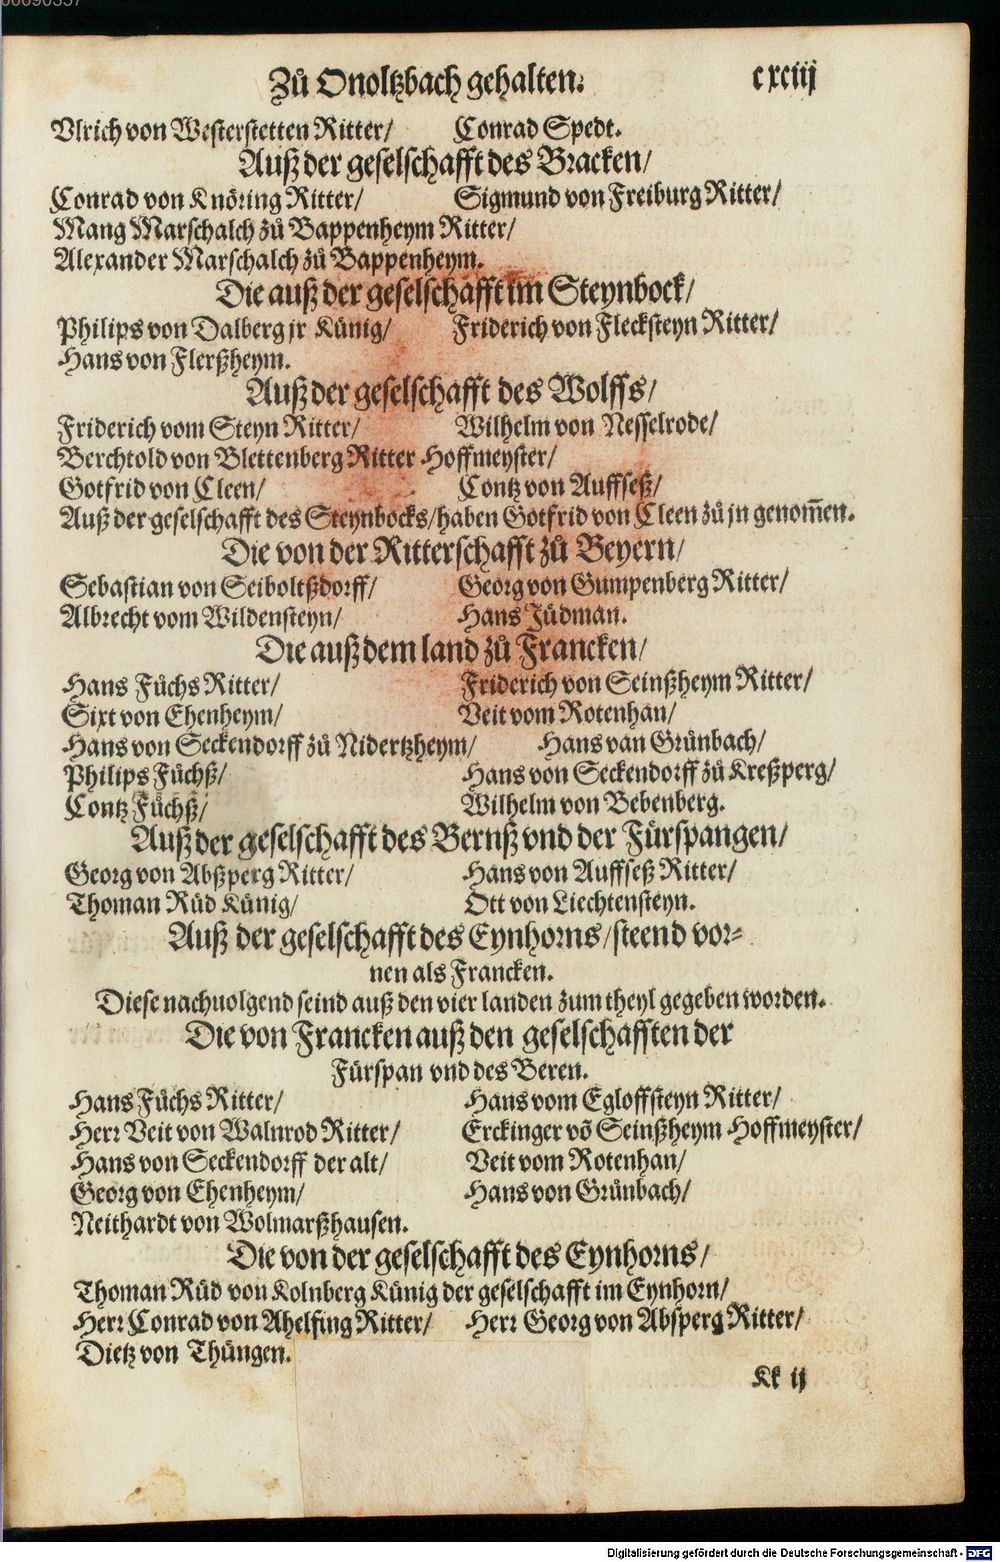 Zů Onoltzbach gehalten. cxciij
Vlrich von Westerstetten Ritter/ Conrad Spedt.
Auß der geselschafft des Bracken/
Conrad von Knöring Ritter/ Sigmund von Freiburg Ritter/
Mang Marschalch zů Bappenheym Ritter/
Alexander Marschalch zů Bappenheym.
Die auß der geselschafft im Steynbock/
Philips von Dalberg jr Künig/ Friderich von Flecksteyn Ritter/
Hans von Flerßheym.
Auß der geselschafft des Wolffs/
Friderich vom Steyn Ritter/ Wilhelm von Nesselrode/
Berchtold von Blettenberg Ritter Hoffmeyster/
Gotfrid von Cleen/ Contz von Auffseß/
Auß der geselschafft des Steynbocks/haben Gotfrid von Cleen zů jn genom̃en.
Die von der Ritterschafft zů Beyern/
Sebastian von Seiboltßdorff/ Georg von Gumpenberg Ritter/
Albrecht vom Wildensteyn/ Hans Jüdman.
Die auß dem land zů Francken/
Hans Füchs Ritter/ Friderich von Seinßheym Ritter/
Sixt von Ehenheym/ Veit vom Rotenhan/
Hans von Seckendorff zů Nidertzheym/ Hans van Grünbach/
Philips Füchß/ Hans von Seckendorff zů Kreßperg/
Contz Füchß/ Wilhelm von Bebenberg.
Auß der geselschafft des Bernß vnd der Fürspangen/
Georg von Abßperg Ritter/ Hans von Auffseß Ritter/
Thoman Rüd Künig/ Ott von Liechtensteyn.
Auß der geselschafft des Eynhorns/steend vor⸗
nen als Francken.
Diese nachuolgend seind auß den vier landen zum theyl gegeben worden.
Die von Francken auß den geselschafften der
Fürspan vnd des Beren.
Hans Füchs Ritter/ Hans vom Egloffsteyn Ritter/
Herr Veit von Walnrod Ritter/ Erckinger võ Seinßheym Hoffmeyster/
Hans von Seckendorff der alt/ Veit vom Rotenhan/
Georg von Ehenheym/ Hans von Grünbach/
Neithardt von Wolmarßhausen.
Die von der geselschafft des Eynhorns/
Thoman Rüd von Kolnberg Künig der geselschafft im Eynhorn/
Herr Conrad von Ahelfing Ritter/ Herr Georg von Absperg Ritter/
Dietz von Thüngen.
Kk ij
Digitalisierung gefördert durch die Deutsche Forschungsgemeinschaft - DFG